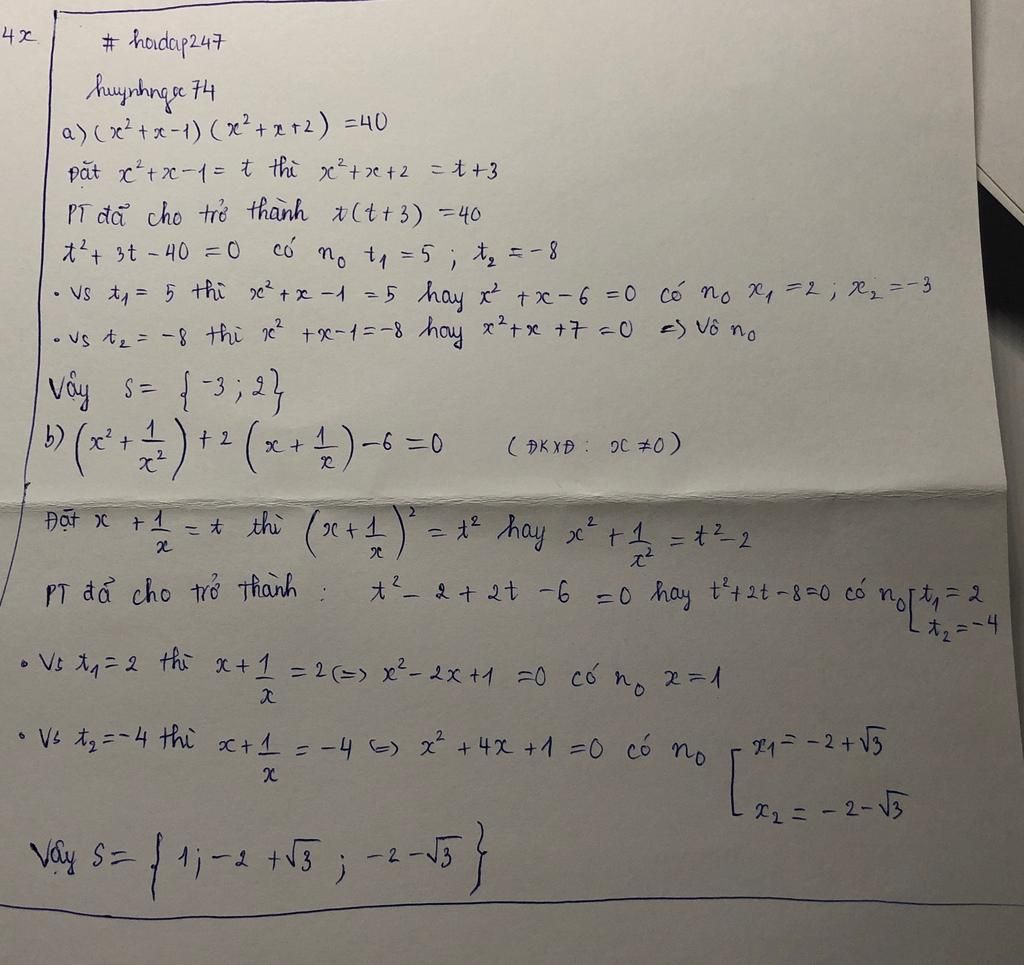 4x
# hoidap247
huynhngoc74
a) (x² + x - 1) (x² + x + 2) = 40
Đặt x² + x - 1 = t thì x² + x + 2 = t + 3
PT đã cho trở thành t(t + 3) = 40
t² + 3t - 40 = 0 có n₀ t₁ = 5 ; t₂ = -8
• Vs t₁ = 5 thì x² + x - 1 = 5 hay x² + x - 6 = 0 có n₀ x₁ = 2 ; x₂ = -3
• Vs t₂ = -8 thì x² + x - 1 = -8 hay x² + x + 7 = 0 => Vô n₀
Vậy S = { -3 ; 2}
b) (x² + 1/x²) + 2 (x + 1/x) - 6 = 0 (ĐKXĐ: x ≠ 0)
Đặt x + 1/x = t thì (x + 1/x)² = t² hay x² + 1/x² = t² - 2
PT đã cho trở thành : t² - 2 + 2t - 6 = 0 hay t² + 2t - 8 = 0 có n₀ [ t₁ = 2
t₂ = -4
• Vs t₁ = 2 thì x + 1/x = 2 (=> x² - 2x + 1 = 0 có n₀ x = 1
• Vs t₂ = -4 thì x + 1/x = -4 <=> x² + 4x + 1 = 0 có n₀ [ x₁ = -2 + √3
x₂ = -2 - √3
Vậy S = { 1 ; -2 + √3 ; -2 - √3 }